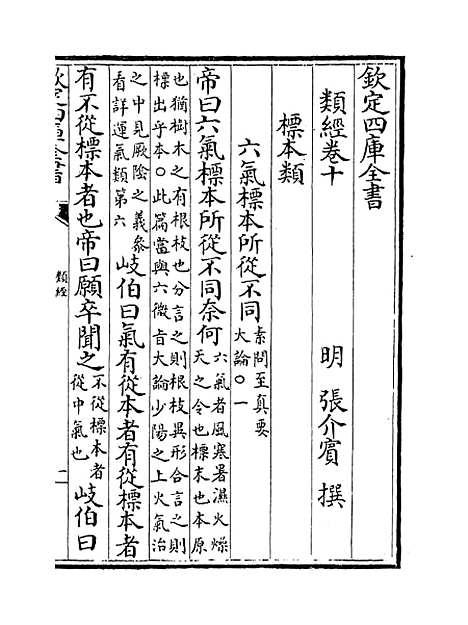 欽定四庫全書
類經卷十
明 張介賓 撰
標本類
六氣標本所從不同 素問至真要
大論○一
帝曰六氣標本所從不同奈何 六氣者風寒暑濕火燥
天之令也標末也本原
也猶樹木之有根枝也分言之則根枝異形合言之則
標出乎本○此篇當與六微旨大論少陽之上火氣治
之中見厥隂之義叅
看詳運氣類第六 岐伯曰氣有從本者有從標本者
有不從標本者也帝曰願卒聞之 不從標本者
從中氣也 岐伯曰
欽定四庫全書
類經
二